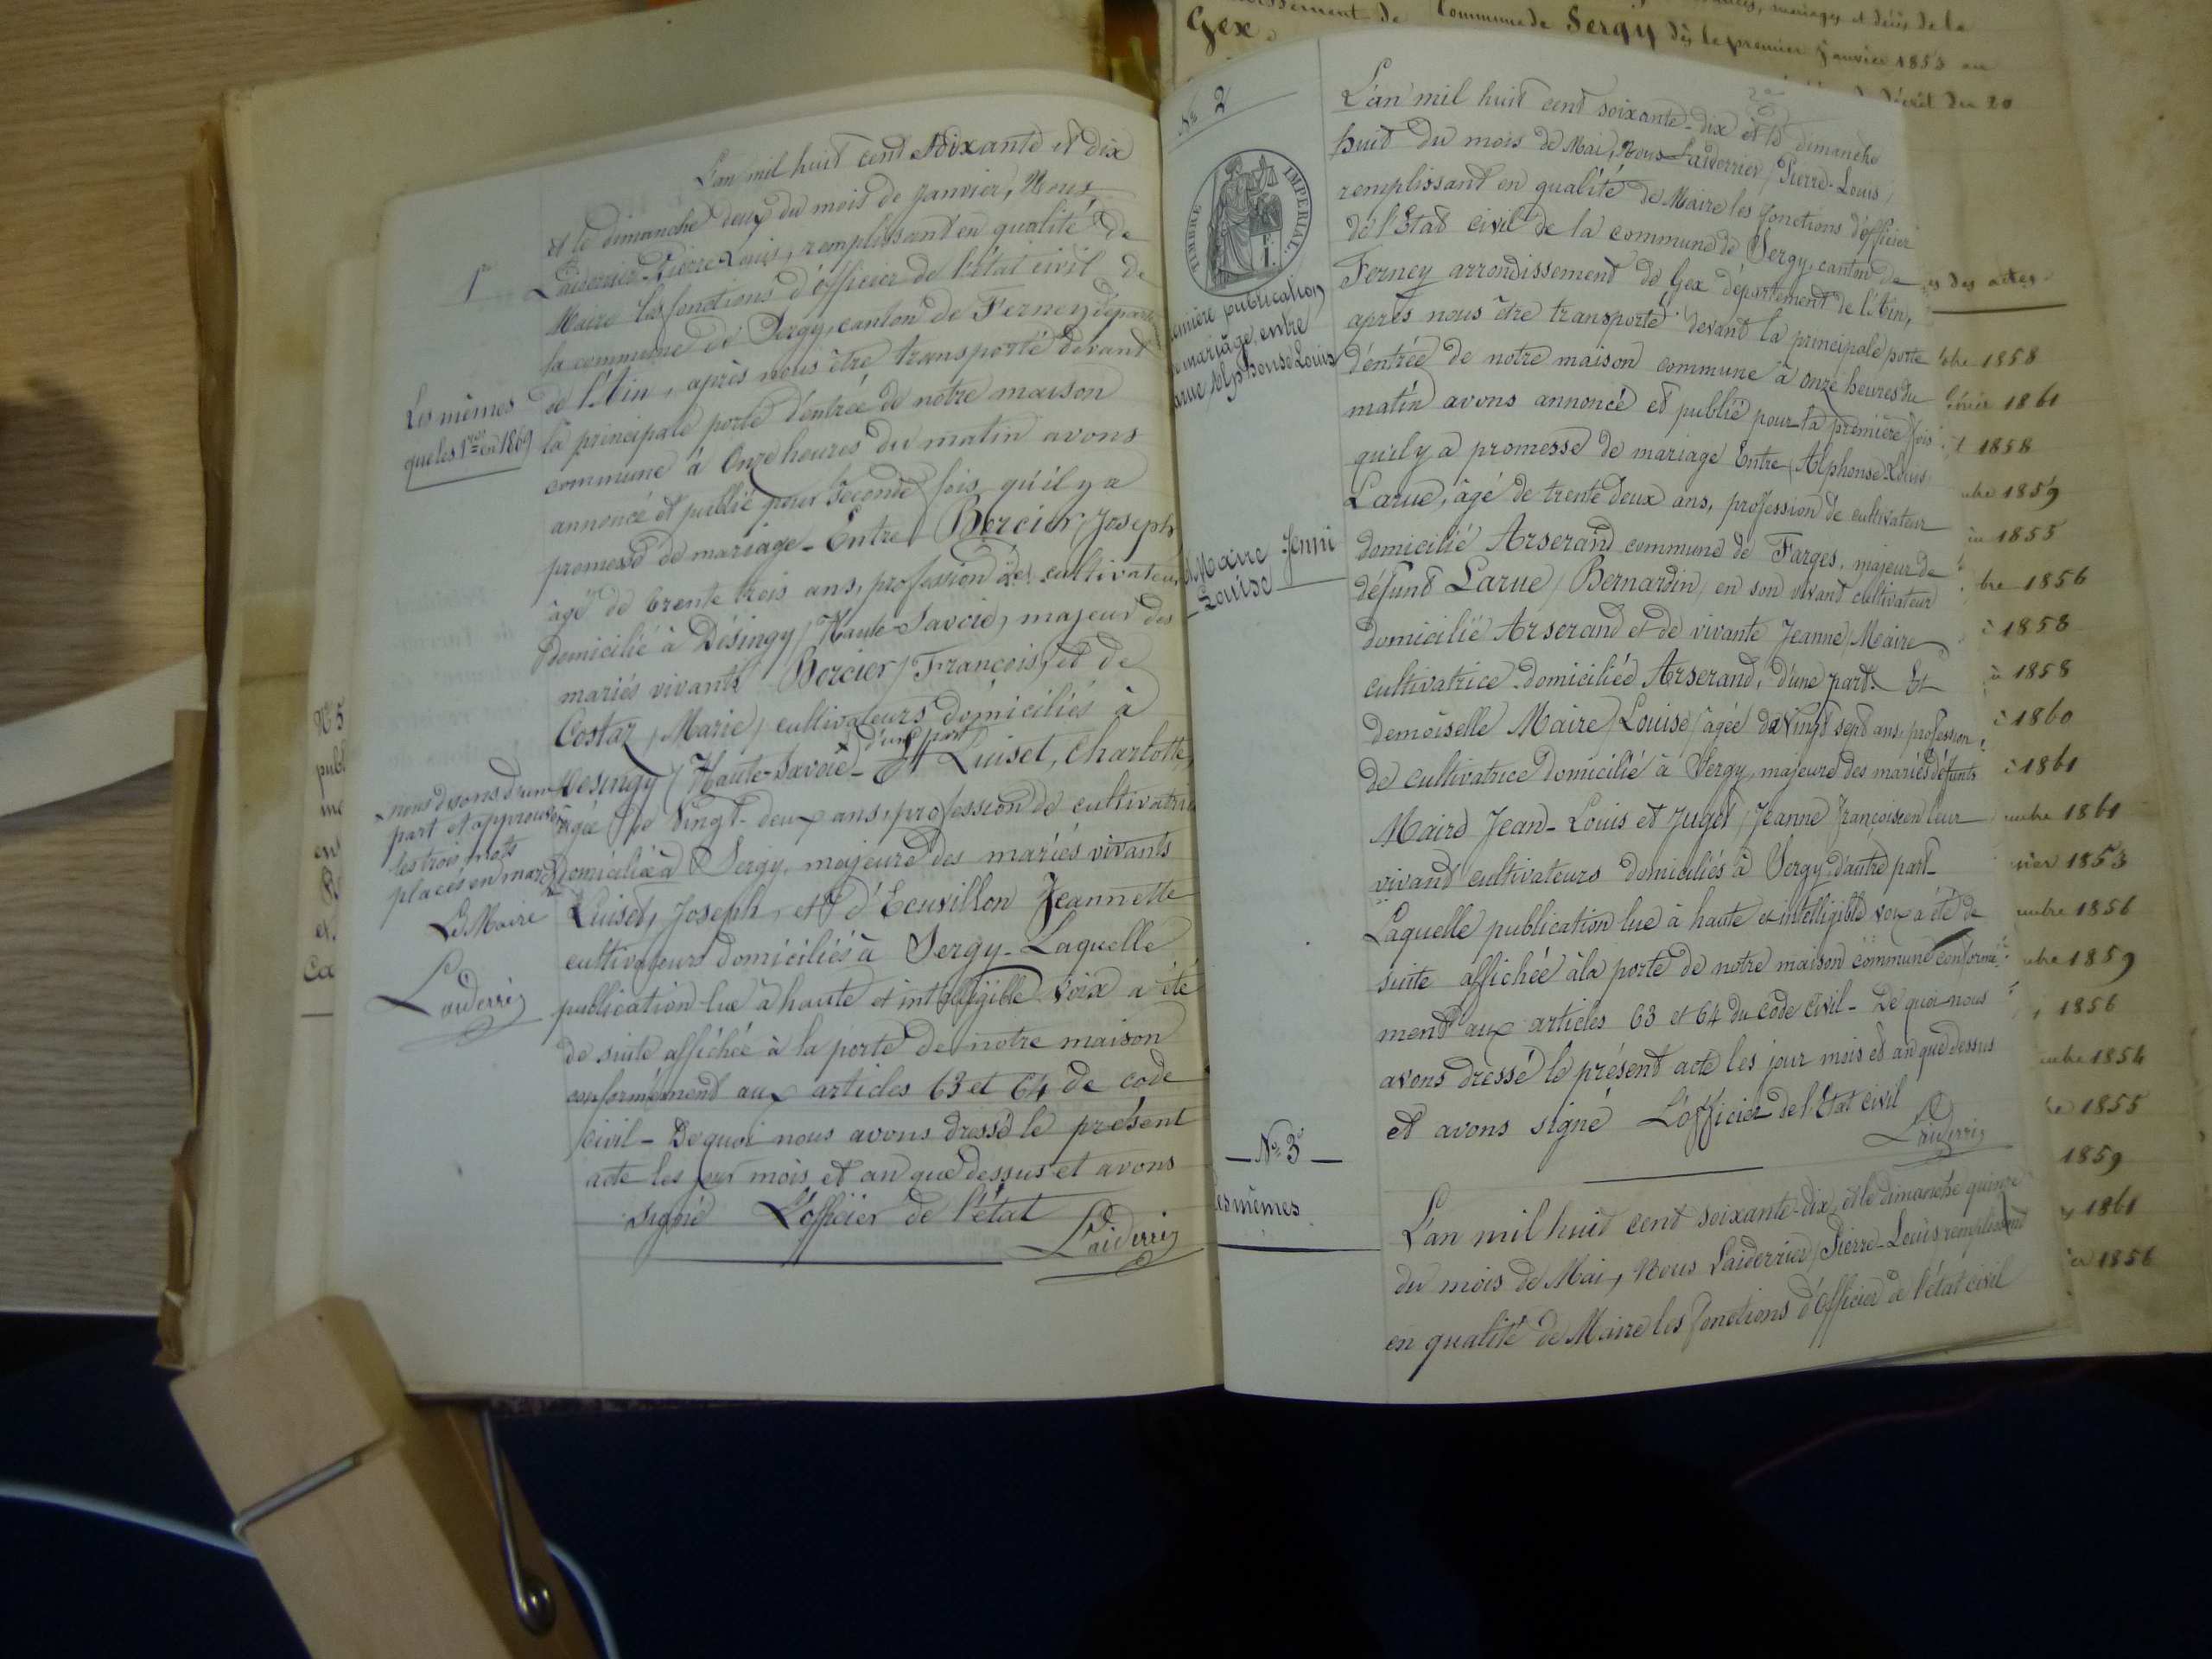 1er
Les mêmes
que les 1res en 1869
L'an mil huit cent soixante et dix
et le dimanche deux du mois de Janvier, Nous
Laiderrier Pierre-Louis, remplissant en qualité de
Maire les fonctions d'officier de l'état civil de
la commune de Sergy, canton de Ferney départ
de l'Ain, après nous être transporté devant
la principale porte d'entrée de notre maison
commune à Onze heures du matin avons
annoncé et publié pour seconde fois qu'il y a
promesse de mariage - Entre Borcier / Joseph
âgé de trente trois ans, profession de cultivateur
domicilié à Désingy / Haute-Savoie, majeur des
mariés vivants Borcier / François / et de
Costaz / Marie / cultivateurs domiciliés à
d'une part
Désingy / Haute-Savoie - Et Luiset, Charlotte,
âgée de Vingt-deux ans, profession de cultivatrice
domiciliée à Sergy, majeure des mariés vivants
Luiset, Joseph, et d'Ecuvillon Jeannette
cultivateurs domiciliés à Sergy - Laquelle
publication lue à haute et intelligible voix a été
de suite affichée à la porte de notre maison
conformément aux articles 63 et 64 de code
civil - De quoi nous avons dressé le présent
acte les jour mois et an que dessus et avons
signé L'officier de l'état
Laiderrier
x nous disons d'une
part et approuvé
les trois mots
placés en marge
Le Maire
Laiderrier
No 5
publ
me
en
et
Ca
No 2
TIMBRE IMPERIAL
1 F.
emière publication
e mariage entre
arue Alphonse Louis
et Maire Jenni
Louise
L'an mil huit cent soixante-dix et le dimanche
huit du mois de Mai, Nous Laiderrier / Pierre-Louis /
remplissant en qualité de Maire les fonctions d'officier
de l'Etat civil de la commune de Sergy, canton de
Ferney arrondissement de Gex département de l'Ain,
après nous être transporté devant la principale porte
d'entrée de notre maison commune à onze heures du
matin avons annoncé et publié pour la première fois
qu'il y a promesse de mariage Entre Alphonse-Louis
Larue, âgé de trente deux ans, profession de cultivateur
domicilié Arserand commune de Farges, majeur de
défunt Larue / Bernardin / en son vivant cultivateur
domicilié Arserand et de vivante Jeanne / Maire
cultivatrice domiciliée Arserand, d'une part. Et
demoiselle Maire / Louise / âgée de Vingt sept ans, profession
de cultivatrice domicilié à Sergy, majeure des mariés défunts
Maire Jean-Louis et Juget / Jeanne Françoise en leur
vivant cultivateurs domiciliés à Sergy d'autre part -
Laquelle publication lue à haute et intelligible voix a été de
suite affichée à la porte de notre maison commune conformé-
ment aux articles 63 et 64 du code civil - De quoi nous
avons dressé le présent acte les jour mois et an que dessus
et avons signé L'officier de l'Etat civil
Laiderrier
No 3
Les mêmes
L'an mil huit cent soixante-dix, et le dimanche quinze
du mois de Mai, Nous Laiderrier / Pierre-Louis remplissant
en qualité de Maire les fonctions d'officier de l'état civil
mariages et décès de la
issement de Commune de Sergy dès le premier Janvier 1853 au
Gex.
décret du 20
es des actes
bre 1858
février 1861
t 1858
bre 1859
in 1855
bre 1856
1858
1858
1860
1861
embre 1861
vier 1853
embre 1856
bre 1859
1856
embre 1854
1855
1859
1861
1856